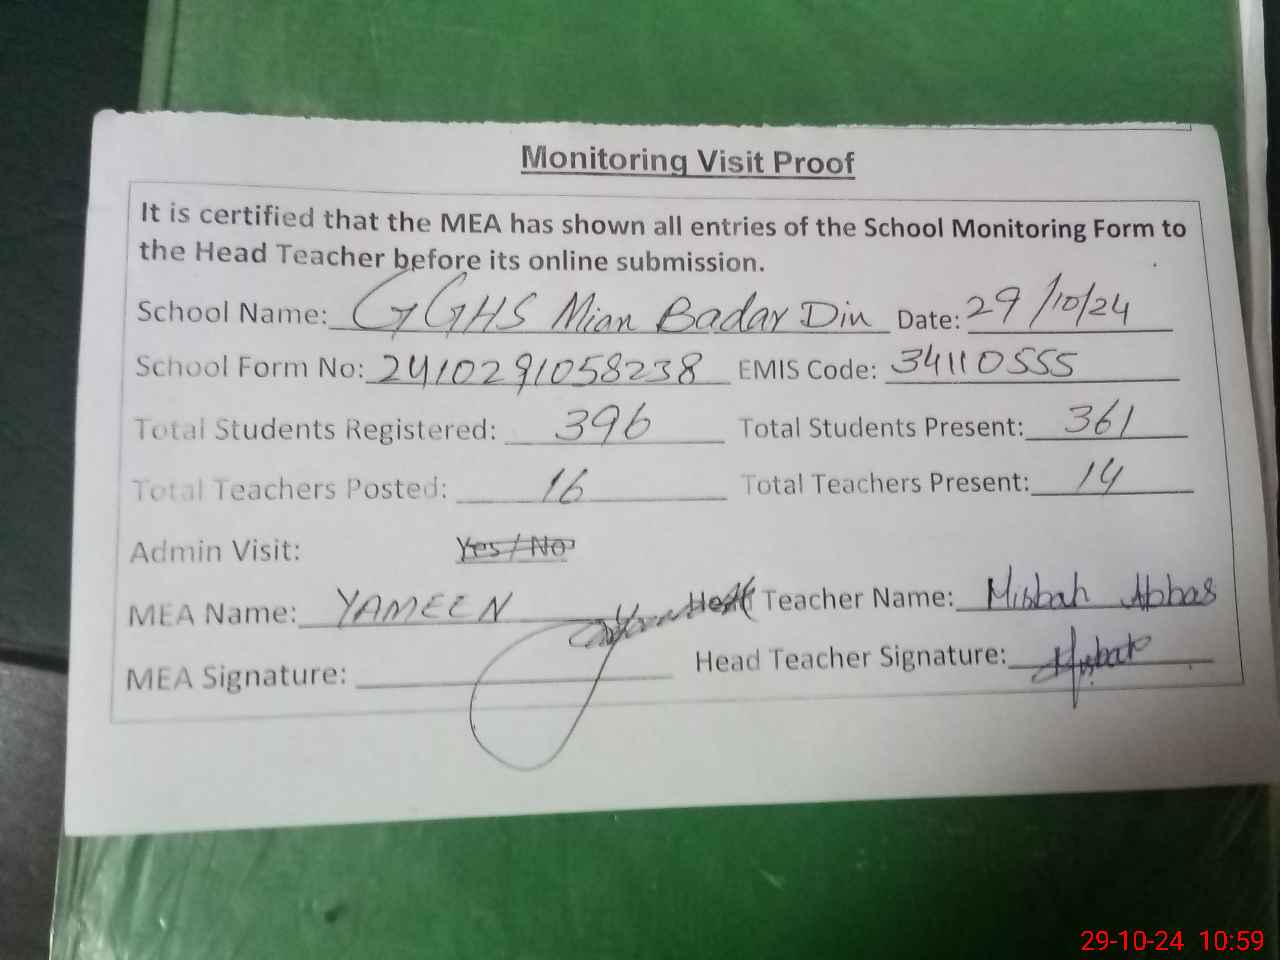 Monitoring Visit Proof
It is certified that the MEA has shown all entries of the School Monitoring Form to
the Head Teacher before its online submission.
School Name: GGHS Mian Badar Din Date: 29/10/24
School Form No: 2410291058238 EMIS Code: 34110555
Total Students Registered: 396 Total Students Present: 361
Total Teachers Posted: 16 Total Teachers Present: 14
Admin Visit: Yes / No
MEA Name: YAMEEN Head Teacher Name: Misbah Abbas
MEA Signature: Head Teacher Signature: Misbah
29-10-24 10:59